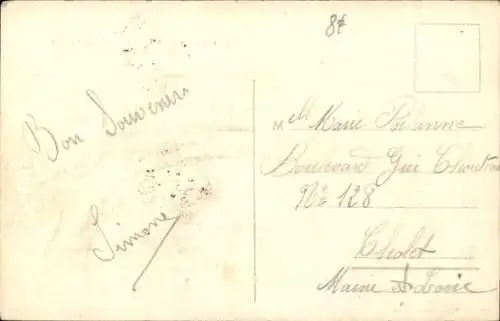 8f
Bon Souvenir
Simone
Melle Marie
Boulevard Gui Chouteau
No 128
Cholet
Maine & Loire